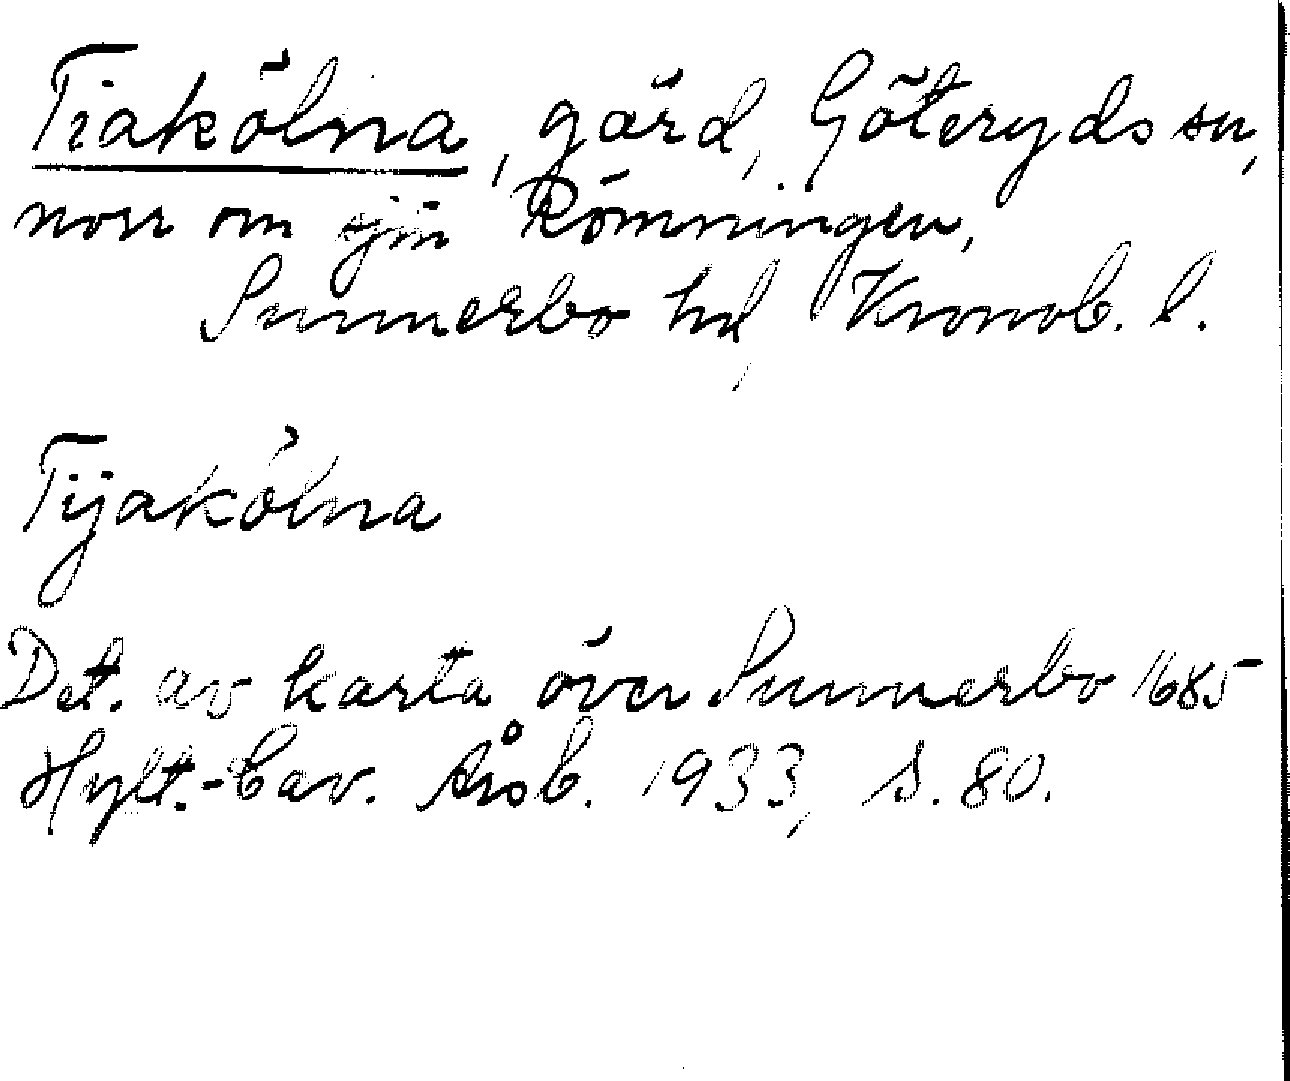 Tiakölna, gård, Göteryds sn,
norr om sjön Römningen,
Sunnerbo hd, Kronob. l.
Tijakölna
Det. av karta över Sunnerbo 1685
Hylt.-Cav. Årsb. 1933, s. 80.